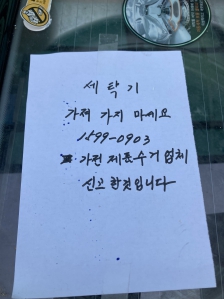 세탁기
가져 가지 마세요
1599-0903
가전 제품 수거 업체
신고 할것입니다